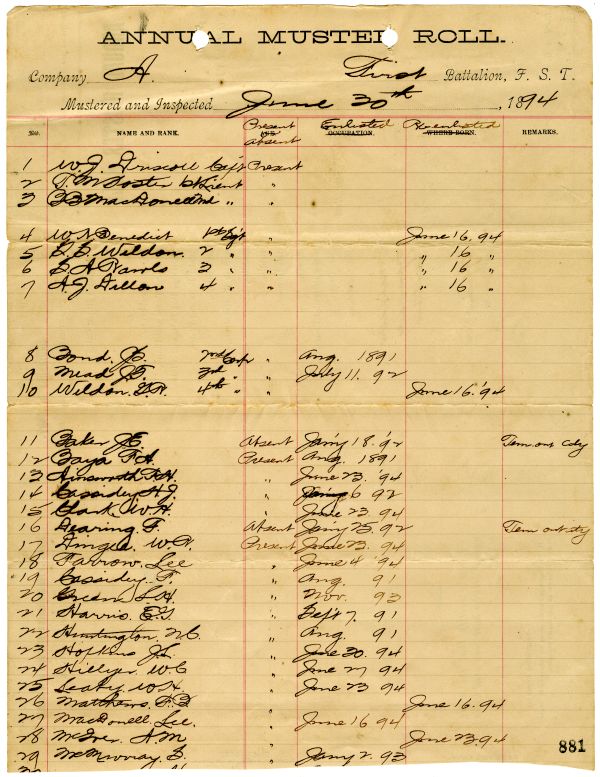 ANNUAL MUSTER ROLL.
Company A. First Battalion, F. S. T.
Mustered and Inspected June 30th, 1894
No. NAME AND RANK. Present OR Absent Enlisted OCCUPATION. Re-enlisted WHERE BORN. REMARKS.
1 W. J. Driscoll Capt Present
2 T. M. Foster 1st Lieut "
3 MacDonell 2nd " "
4 W. N. Benedict 1st Sgt " June 16. 94
5 Weldon 2 " " " 16 "
6 Rawls 3 " " " 16 "
7 A. J. Dillon 4 " " " 16 "
8 Bond, J. S. 2nd Corp " Aug. 1891
9 Mead J. T. 3rd " " July 11. 92
10 Weldon 4th " " June 16. '94
11 Baker J. E. Absent Jan'y 18. '92 Tem. out city
12 Baya F. A. Present Aug. 1891
13 Ainsworth F. H. " June 23. '94
14 Cassidey H. J. " 6 92
15 Clark W. H. " June 23 94
16 Dearing F. Absent Jan'y 25. 92 Tem out city
17 Present June 23. 94
18 Farrow, Lee " June 4 '94
19 Cassidey. F. " Aug. 91
20 Green L. H. " Nov. 93
21 Harris. E. G. " Sept 7. 91
22 Huntington, " Aug. 91
23 Hopkins J. L. " June 30. 94
24 Hillyer W. C " June 27 94
25 Leahy W. H. " June 23 94
26 Matthews. " June 16. 94
27 MacDonell Lee. " June 16 94
28 McIver A. M " June 23. 94
29 McMurray. B. " Jany 2. 93
881